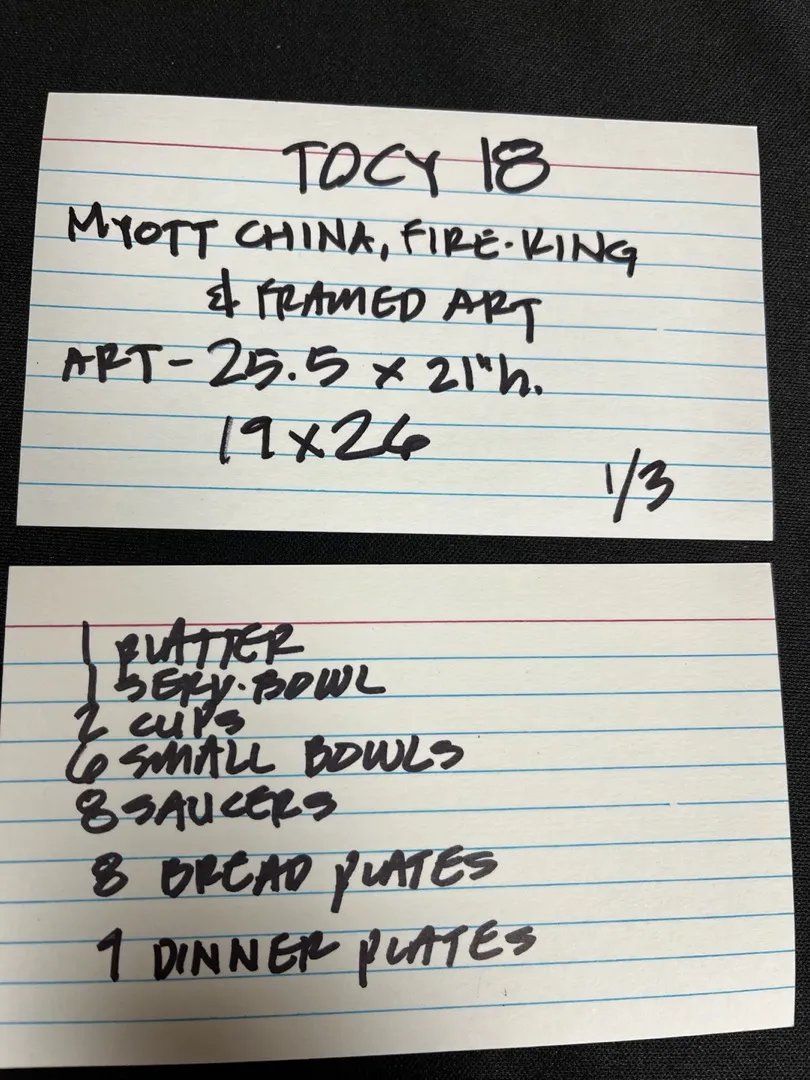 TOCY 18
MYOTT CHINA, FIRE-KING
& FRAMED ART
ART - 25.5 x 21"h.
19 x 26
1/3
1 PLATTER
1 SERV. BOWL
2 CUPS
6 SMALL BOWLS
8 SAUCERS
8 BREAD PLATES
9 DINNER PLATES